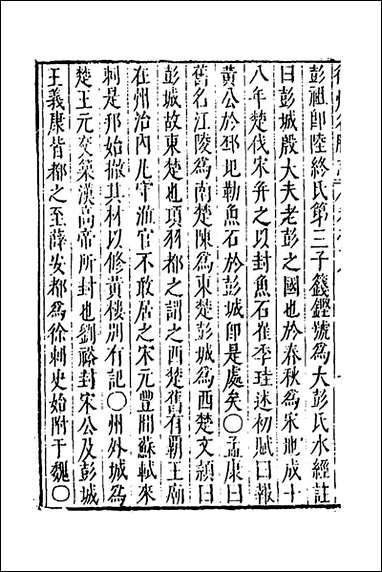 彭祖即陸終氏第三子籛鏗號爲大彭氏水經註
曰彭城殷大夫老彭之國也於春秋爲宋地成十
八年楚伐宋弁之以封魚石崔季珪述初賦曰報
黄公於邳圯勒魚石於彭城即是處矣○孟康曰
舊名江陵爲南楚陳爲東楚彭城爲西楚文頴曰
彭城故東楚也項羽都之謂之西楚舊有覇王廟
在州治内凡守淮官不敢居之宋元豐間蘇軾來
刺是邦始撤其材以修黄樓別有記○州外城爲
楚王元交築漢高帝所封也劉裕封宋公及彭城
王義康皆都之至薛安都爲徐刺史始附于魏○